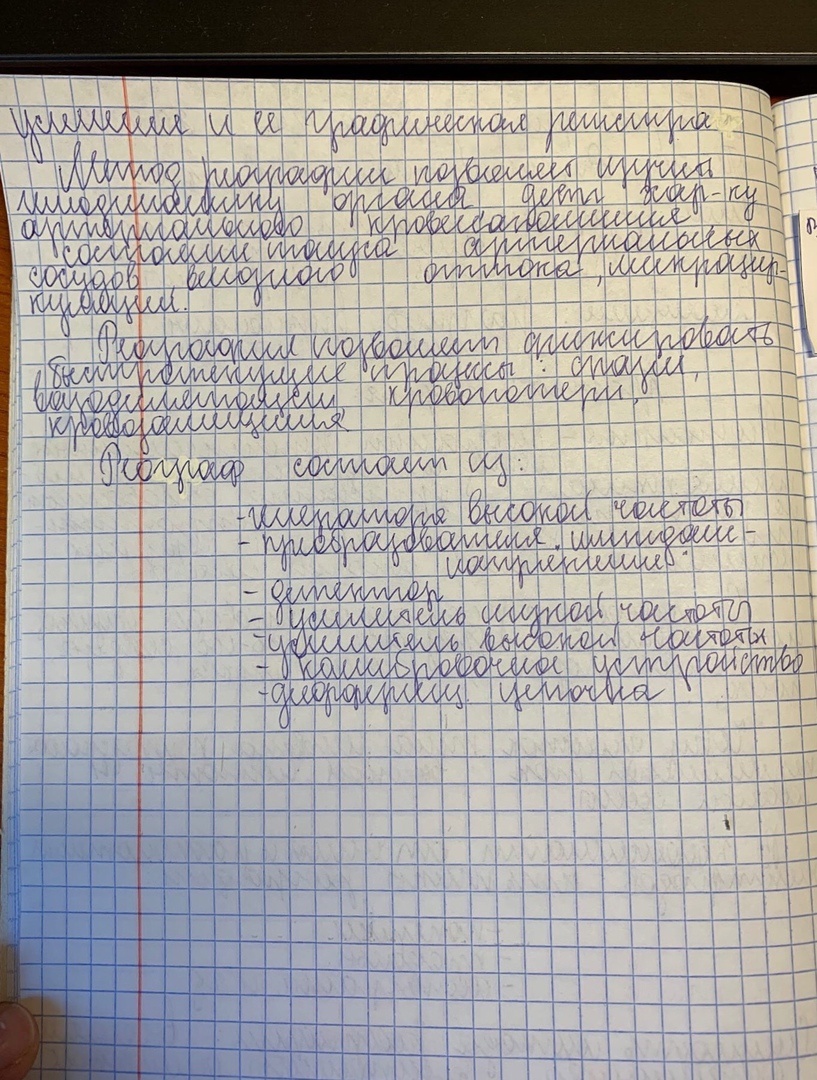 усиления и её графическая регистра
Метод реографии позволяет изучить
гемодинамику органа дать хар-ку
артериального кровенаполнения
состоянии тонуса артериальных
сосудов, венозного оттока, микроцир-
куляции.
Реография позволяет фиксировать
быстротекущие процессы:
вазодилятации кровопотери,
кровозамещения
Реограф состоит из:
-генератора высокой частоты
- преобразователя "импеданс-
напряжение"
- детектор
- усилитель низкой частоты
-усилитель высокой частоты
- калибровочное устройство
-дифференц. цепочка